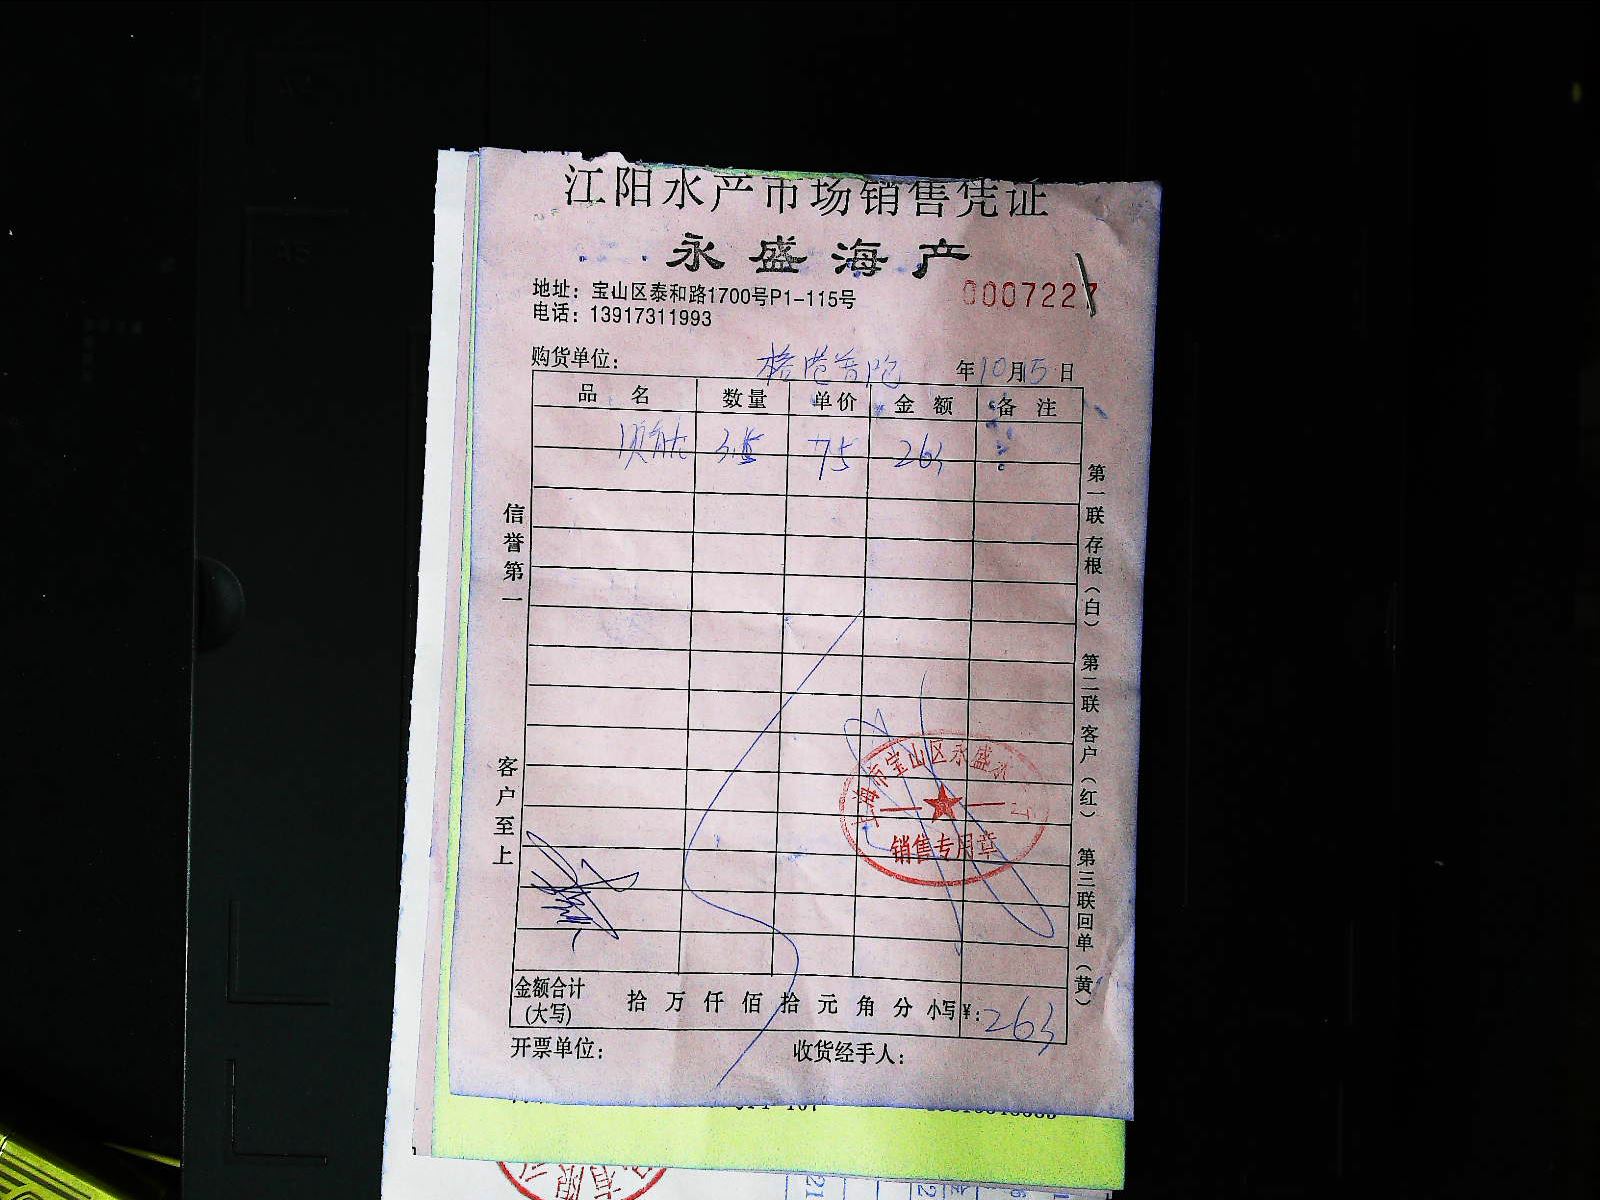 江阳水产市场销售凭证
永盛海产
地址：宝山区泰和路1700号P1-115号
电话：13917311993
0007227
购货单位：
年10月5日
品名 数量 单价 金额 备注
3.5 75 263
信誉第一
客户至上
第一联 存根（白） 第二联 客户（红） 第三联回单（黄）
上海市宝山区永盛水
销售专用章
金额合计（大写） 拾 万 仟 佰 拾 元 角 分 小写¥：263
开票单位： 收货经手人：